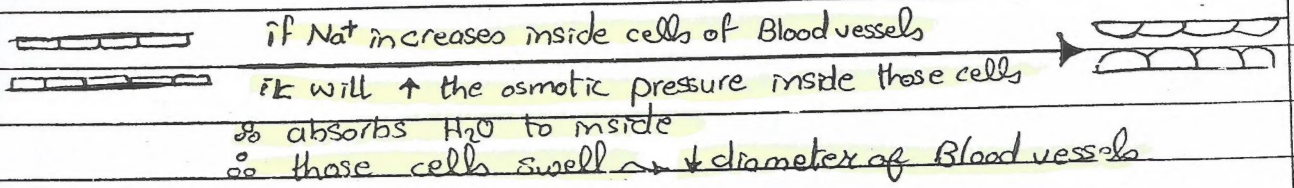 if Na⁺ increases inside cells of Blood vessels
it will ↑ the osmotic pressure inside those cells
∴ absorbs H₂O to inside
∴ those cells swell → ↓ diameter of Blood vessels